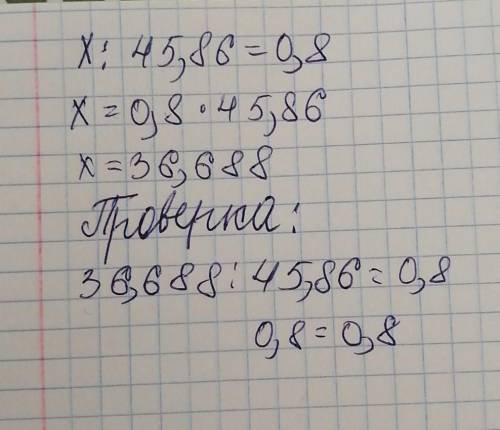 х: 45,86=0,8
х=0,8·45,86
х=36,688
Проверка:
36,688:45,86=0,8
0,8=0,8